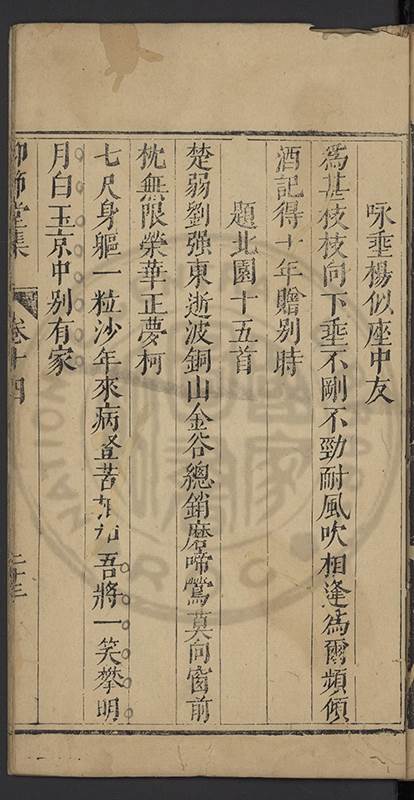 咏垂楊似座中友
為甚枝枝向下垂不剛不勁耐風吹相逢為爾頻傾
酒記得十年贈別時
題北園十五首
楚弱劉强東逝波銅山金谷總銷磨啼鶯莫向窗前
枕無限榮華正夢柯
七尺身軀一粒沙年來病督苦吾將一笑攀明
月白玉京中別有家
師堂集 卷十四 二十三